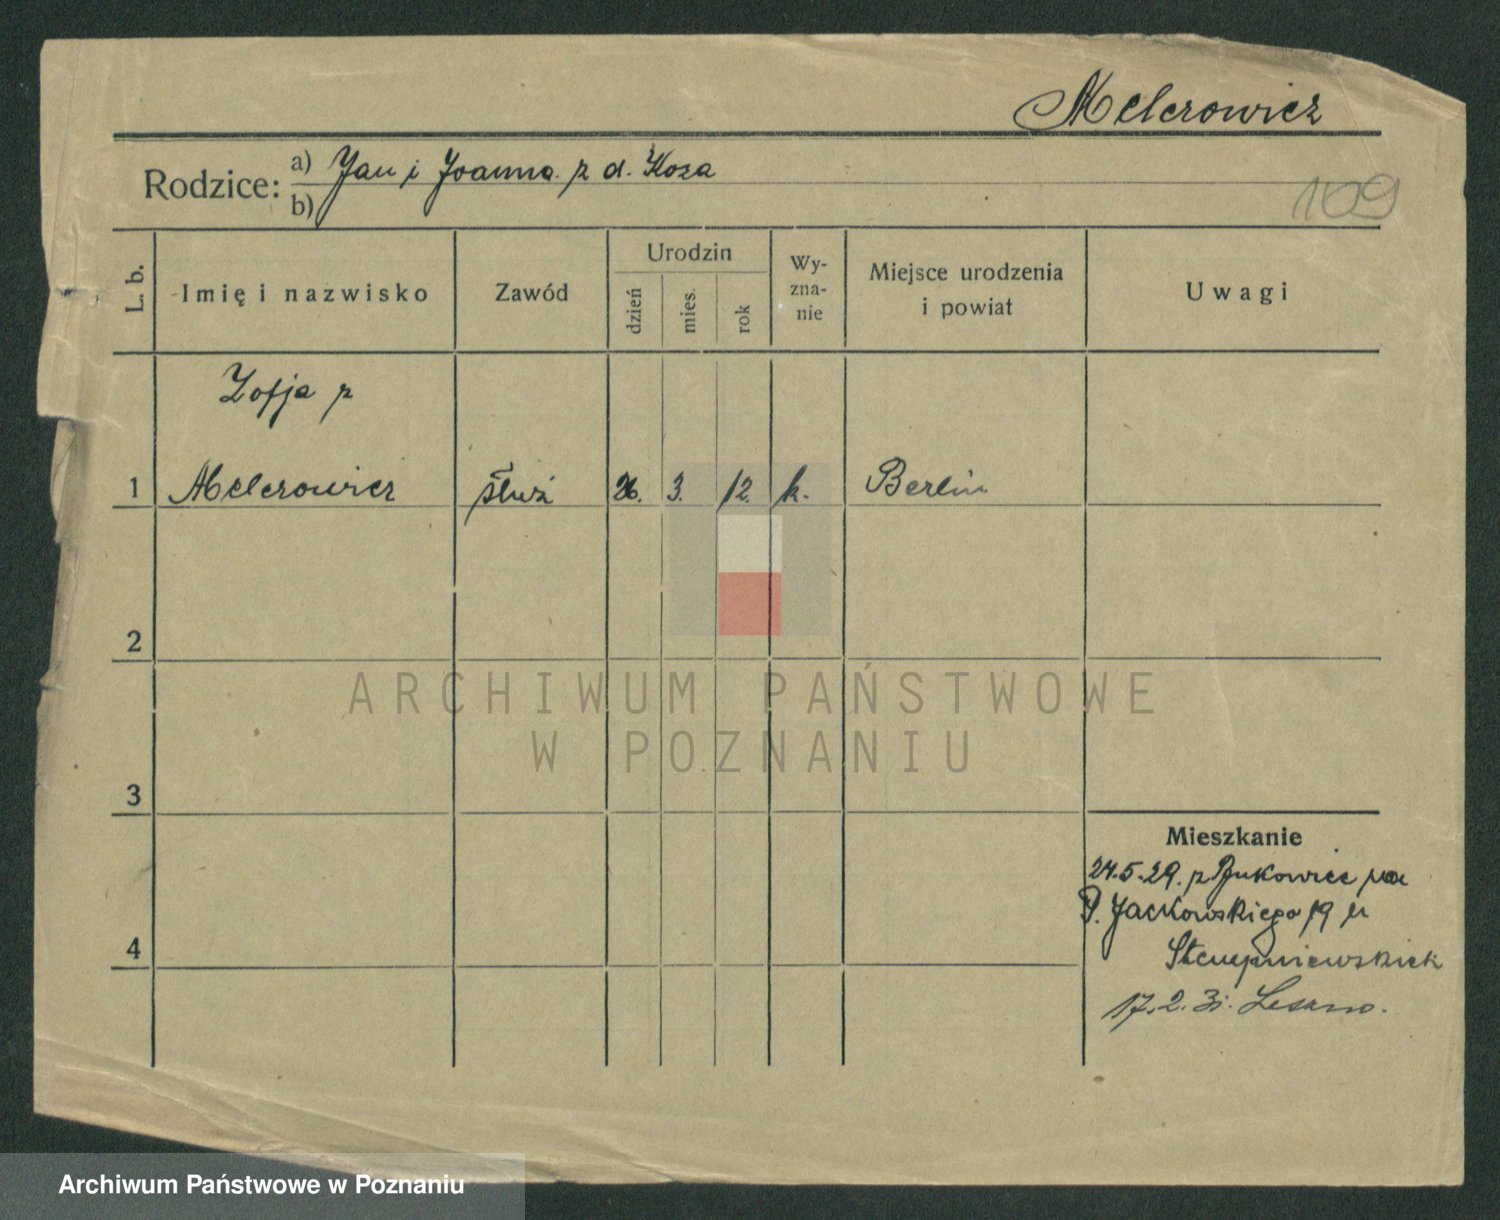 Melerowicz
Rodzice: a) Jan i Joanna z d. Koza
b)
109
L. b.
Imię i nazwisko
Zawód
Urodzin
dzień
mies.
rok
Wy-
zna-
nie
Miejsce urodzenia
i powiat
Uwagi
Zofja z
1 Melerowicz służ 26. 3. 12. k. Berlin
2
3
4
Mieszkanie
24.5.29. z Bukowiec na
P. Jackowskiego 19 u
17.2.31. Leszno.
ARCHIWUM PAŃSTWOWE
W POZNANIU
Archiwum Państwowe w Poznaniu